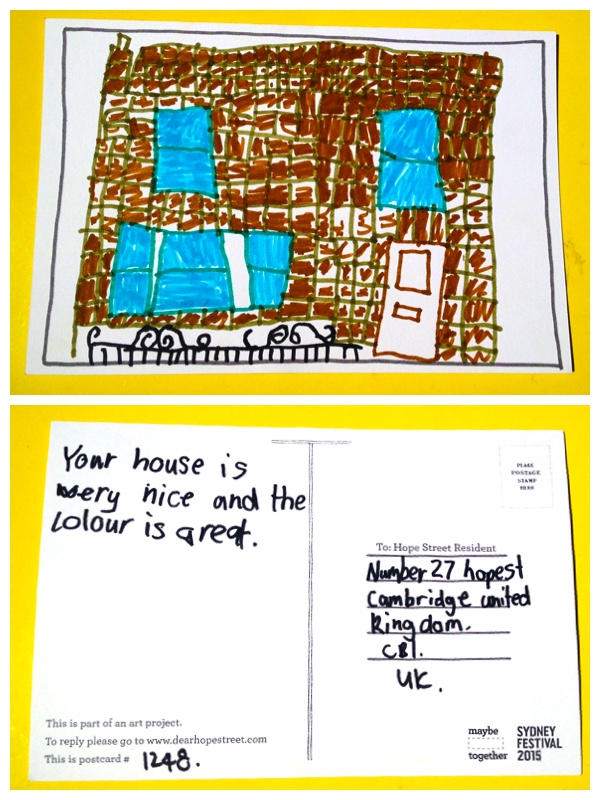 Your house is
very nice and the
colour is great.
PLACE
POSTAGE
STAMP
HERE
To: Hope Street Resident
Number 27 hopest
Cambridge united
Kingdom.
CB1.
UK.
This is part of an art project.
To reply please go to www.dearhopestreet.com
This is postcard # 1248.
maybe
together
SYDNEY
FESTIVAL
2015